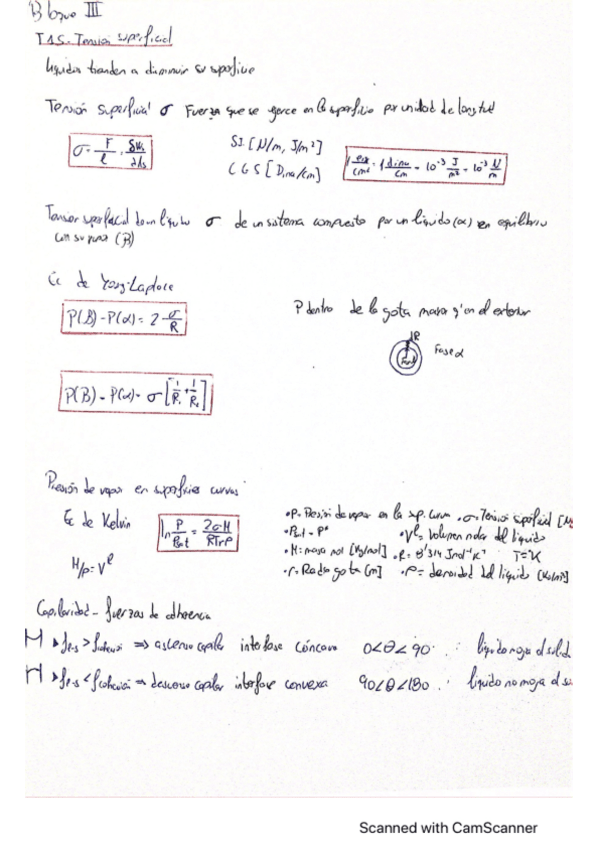 Bloque III
T15.- Tensión superficial
líquidos tienden a disminuir su superficie
Tensión superficial σ Fuerza que se ejerce en la superficie por unidad de longitud
σ = F/l = δW/dS
S.I. [N/m, J/m²]
C G S [Dina/cm]
1 erg/cm² = 1 dina/cm = 10⁻³ J/m² = 10⁻³ N/m
Tension superficial de un líquido σ de un sistema compuesto por un líquido (α) en equilibrio
con su (β)
Ec de Young-Laplace
P(β) - P(α) = 2 σ/R
P dentro de la gota mayor q' en el exterior
R
Fase α
P(β) - P(α) = σ [1/R₁ + 1/R₂]
Presión de vapor en superficies curvas
Ec de Kelvin
ln P/Psat = 2σM/RTrρ
M/ρ = Vˡ
• P = Presión de vapor en la sup. curva • σ = Tensión superficial [N
• Psat = P* • Vˡ = Volumen molar del líquido
• M = masa mol [Kg/mol] • R = 8'314 Jmol⁻¹K⁻¹ T = K
• r = Radio gota [m] • ρ = densidad del líquido [Kg/m³]
Capilaridad - fuerzas de adherencia
fl-s > fcohesión ⇒ ascenso capilar interfase cóncava 0<θ<90 ∴ líquido moja al solid
fl-s < fcohesión ⇒ descenso capilar interfase convexa 90<θ<180 ∴ líquido no moja al so
Scanned with CamScanner